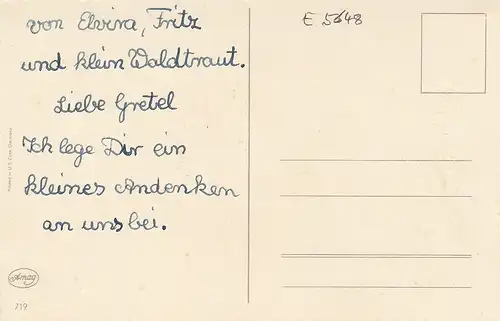 von Elvira, Fritz
und klein Waldtraut.
Liebe Gretel
Ich lege Dir ein
kleines Andenken
an uns bei.
E 5648
Printed in U.S. Zone Germany
Amag
719